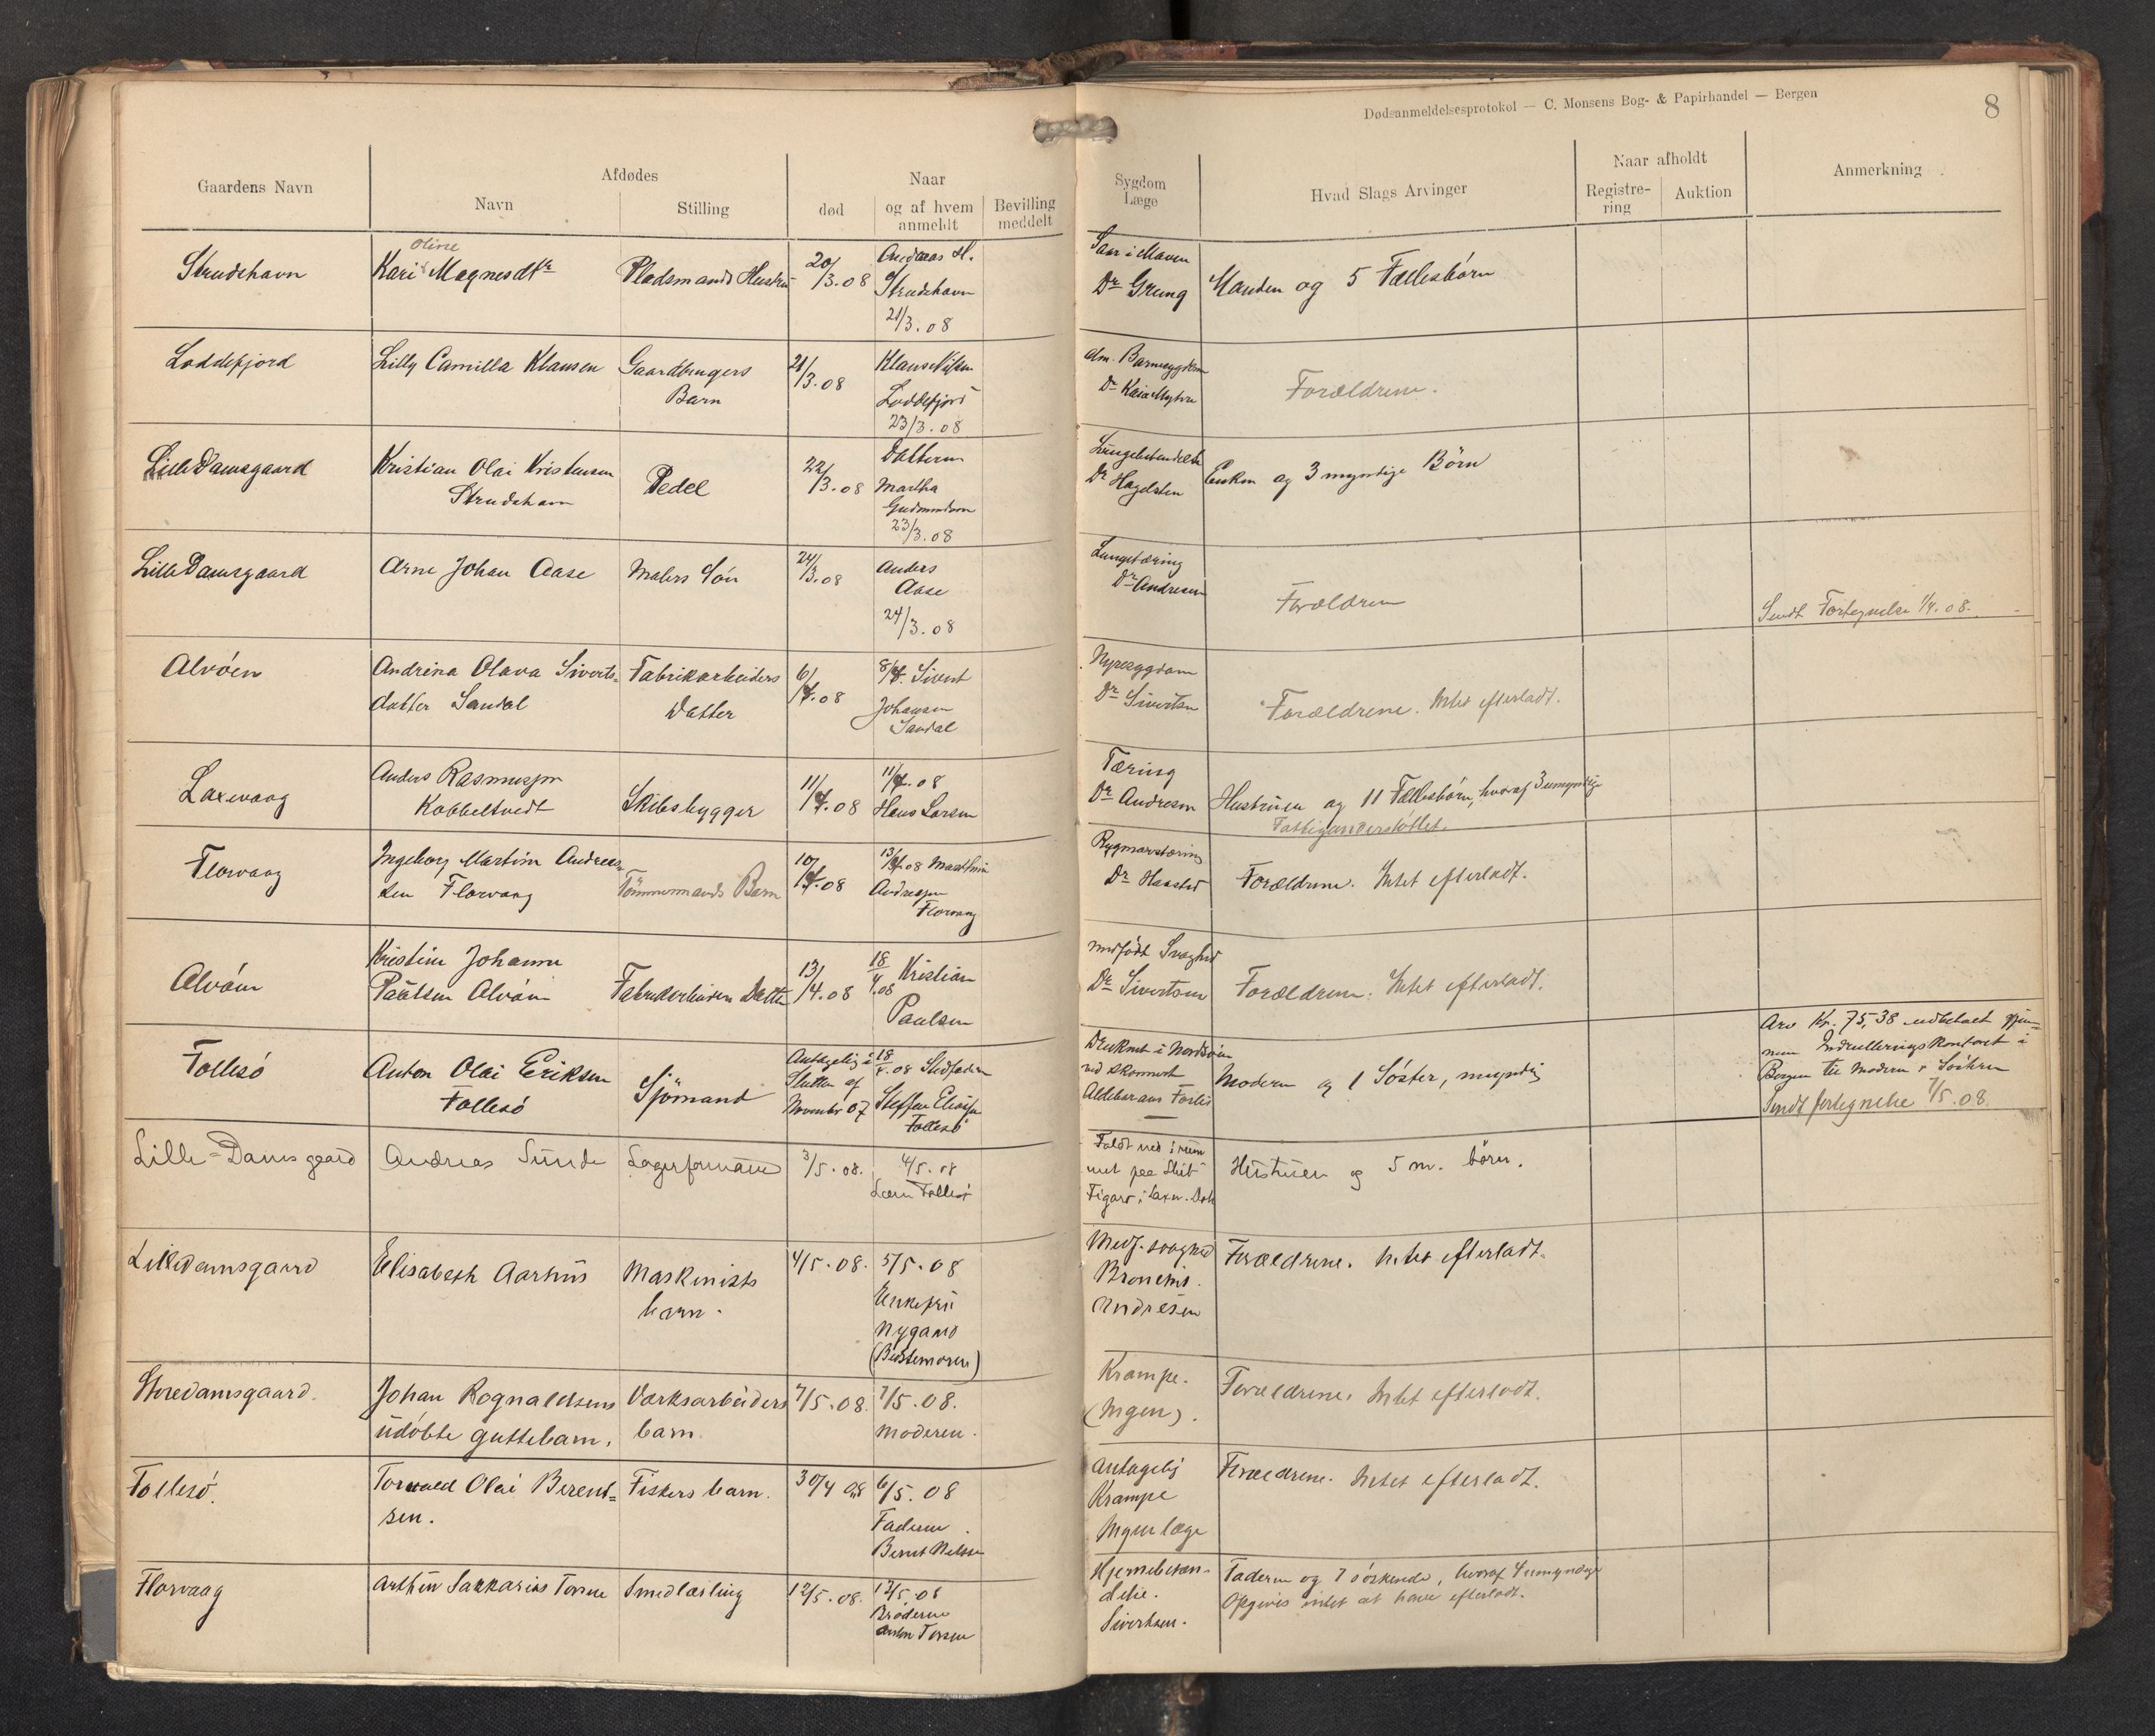 Dødsanmeldelsesprotokol — C. Monsens Bog- & Papirhandel — Bergen
8
Gaardens Navn
Afdødes
Navn
Stilling
Naar
død
og af hvem anmeldt
Bevilling meddelt
Sygdom
Læge
Hvad Slags Arvinger
Naar afholdt
Registre-
ring
Auktion
Anmerkning
Strudshavn
Oline
Kari Magnesdtr
Pladsmands Hustru
20/3.08
Andreas H.
Strudshavn
21/3.08
Saar i Maven
Dr Grung
Manden og 5 Fællesbörn
Loddefjord
Lilly Camilla Klausen
Gaardbrugers
Barn
21/3.08
Klaus Nilsen
Loddefjord
23/3.08
alm. Barnesygdom
Dr Kaia Myhre
Forældrene.
Lille Damsgaard
Kristian Olai Kristensen
Strudshavn
Pedel
22/3.08
Datteren
Martha
23/3.08
Lungebetændelse
Dr Hagelsten
Enken og 3 myndige Börn
Lille Damsgaard
Arne Johan Aase
Malers Sön
24/3.08
Anders
Aase
24/3.08
Lungetæring
Dr Andresen
Forældrene
Sendt Fortegnelse 1/4.08.
Alvöen
Andrina Olava Siverts-
datter Sandal
Fabrikarbeiders
Datter
6/4.08
8/4. Sivert
Johansen
Sandal
Nyresygdom
Dr Sivertsen
Forældrene. Intet efterladt.
Laxevaag
Anders Rasmussen
Kobbeltvedt
Skibsbygger
11/4.08
11/4.08
Hans Larsen
Tæring
Dr Andresen
Hustruen og 11 Fællesbörn, hvoraf 3 umyndige
Fattigunderstöttet.
Florvaag
Ingeborg Martine Andreas-
sen Florvaag
Tömmermands Barn
10/4.08
13/4.08 Marthin
Andreassen
Florvaag
Rygmarvstæring
Dr Haasted
Forældrene. Intet efterladt.
Alvöen
Kristine Johanne
Paulsen Alvöen
Fabrikarbeiders Datter
13/4.08
18/4.08 Kristian
Paulsen
medfödt Svaghed
Dr Sivertsen
Forældrene. Intet efterladt.
Follesö
Anton Olai Eriksen
Follesö
Sjömand
Antagelig i
Slutten af
November 07
18/4.08 Stedfaderen
Steffen Eliassen
Follesö
Druknet i Nordsöen
ved Skonnert
Aldebarans Forlis
Moderen og 1 Söster, myndig
Arv Kr. 75,38 udbetalt gjen-
nem Indrulleringskontoret i
Bergen til Moderen & Sösteren
Sendt fortegnelse 7/5.08.
Lille-Damsgaard
Andreas Sunde
Lagerformand
3/5.08.
4/5.08
Lars Follesö
Faldt ned i rum-
met paa Skib
Figaro i Laxev. Dok
Hustruen og 5 m. börn.
Lilledamsgaard
Elisabeth Aarhus
Maskinists
barn.
4/5.08.
5/5.08
Enkefru
Nygaard
(Bedstemoren)
Medf. svaghed
Andresen
Forældrene. Intet efterladt.
Storedamsgaard.
Johan Rognaldsens
udöbte guttebarn.
Værksarbeiders
barn.
7/5.08.
7/5.08.
Moderen.
Krampe.
(Ingen).
Forældrene. Intet efterladt.
Follesö.
Torvald Olai Berent-
sen.
Fiskers barn.
30/4 08
6/5.08
Faderen
Bernt Nilssen
Antagelig
Krampe
Ingen læge
Forældrene. Intet efterladt.
Florvaag
Arthur Sakkarias Torsen
Smedlærling
12/5.08.
12/5.08
Broderen
Anton Torsen
Hjernebetæn-
delse.
Sivertsen.
Faderen og 7 söskende, hvoraf 4 umyndige
Opgives intet at have efterladt.